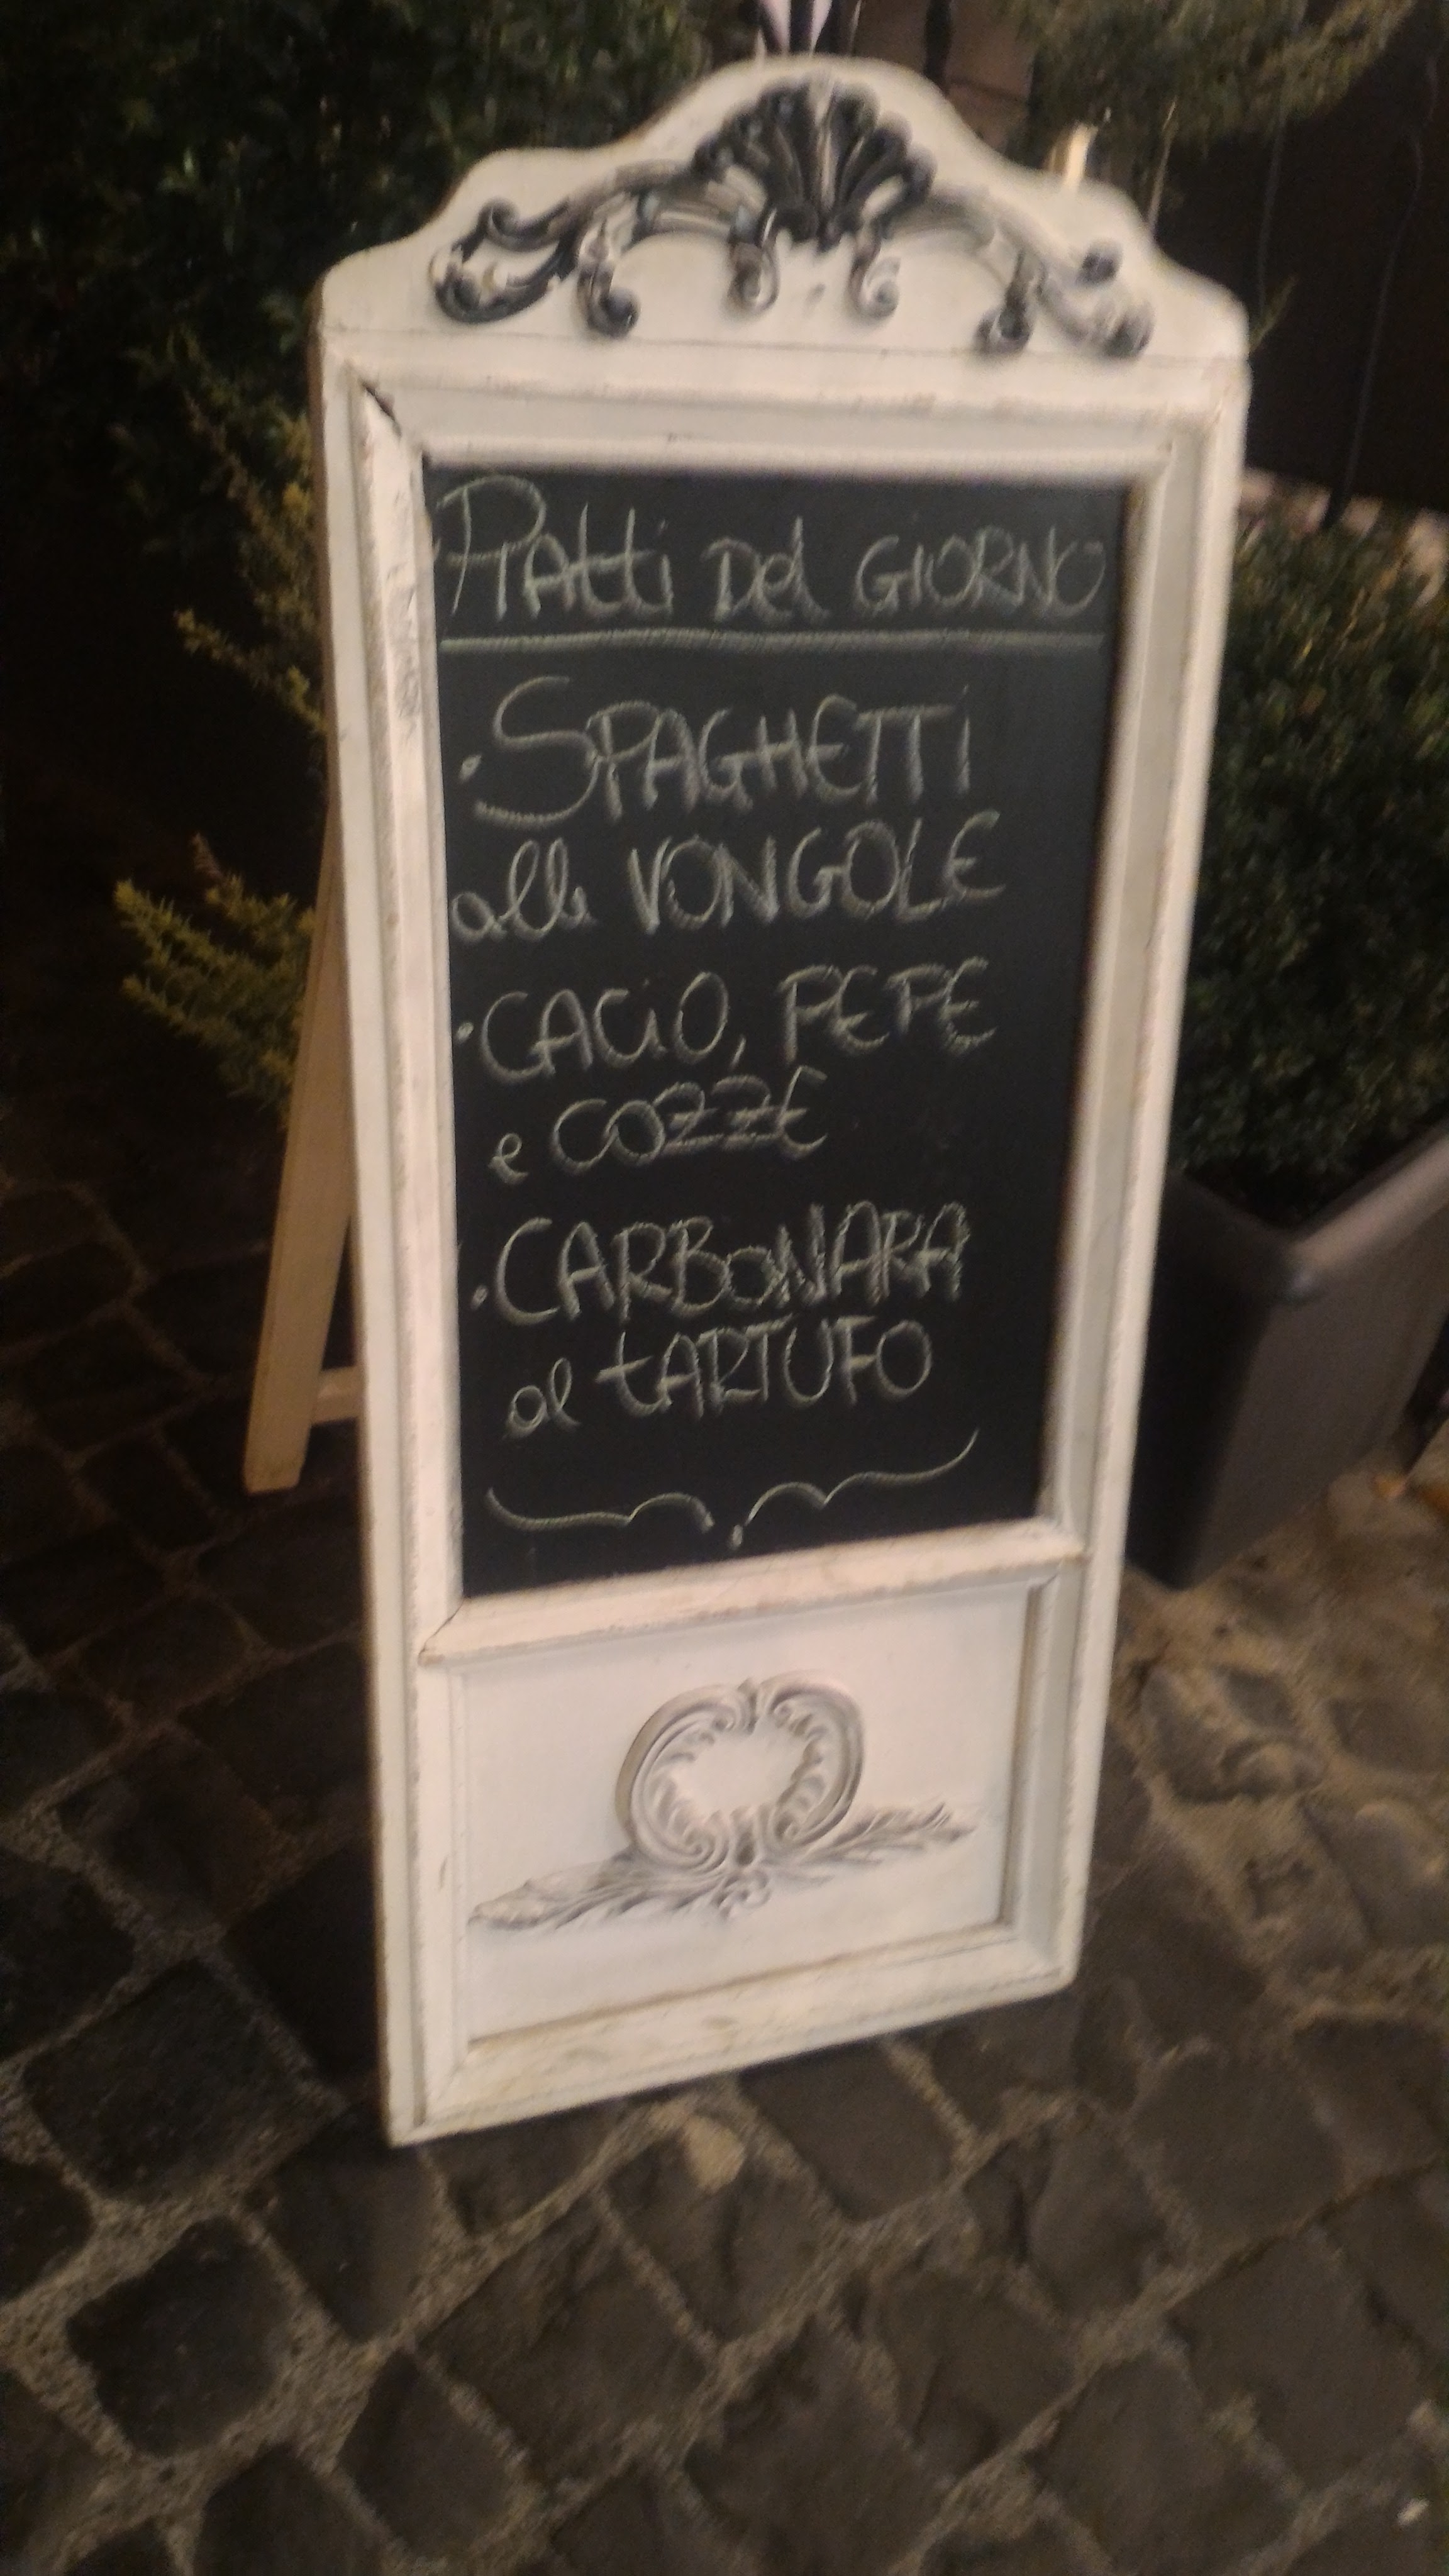 Piatti Del GIORNO
· SPAGHETTi
alle VONGOLE
· CACiO, PEPE
e COZZE
· CARBONARA
al tARTUFO